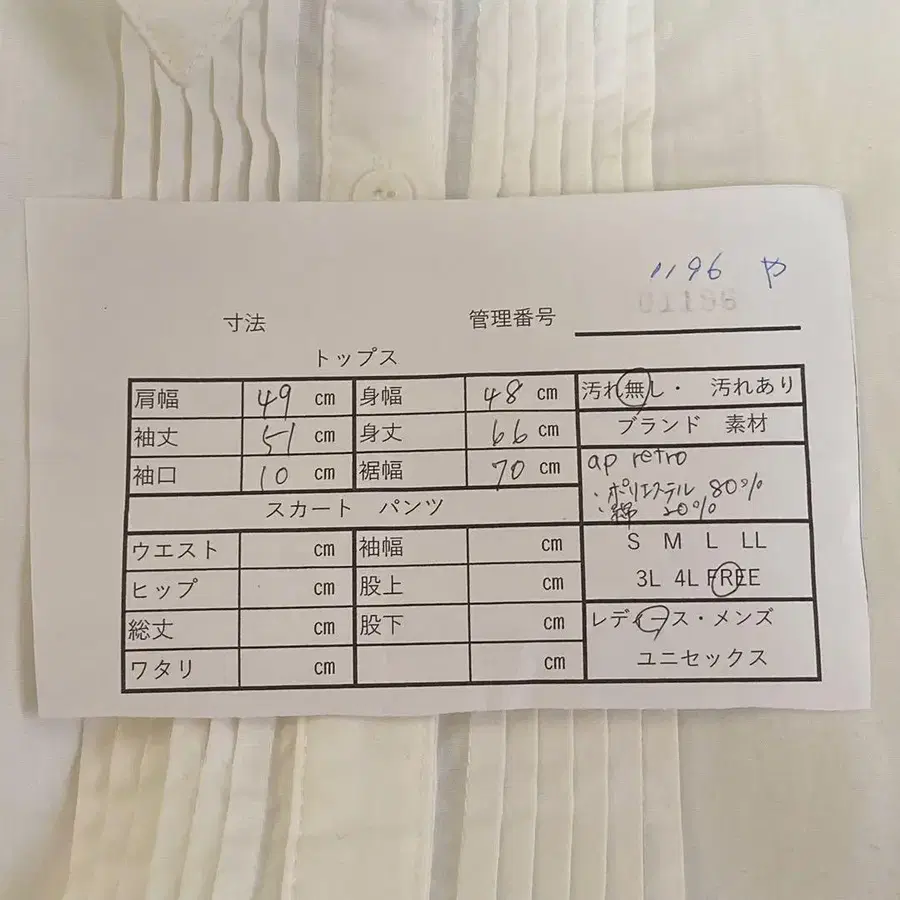 1196 や
01196
寸法 管理番号
トップス
肩幅 49 cm 身幅 48 cm 汚れ無し・ 汚れあり
袖丈 51 cm 身丈 66 cm ブランド 素材
袖口 10 cm 裾幅 70 cm ap retro
・ポリエステル 80%
・綿 20%
スカート パンツ
ウエスト cm 袖幅 cm S M L LL
ヒップ cm 股上 cm 3L 4L FREE
総丈 cm 股下 cm レディース・メンズ
ワタリ cm cm ユニセックス